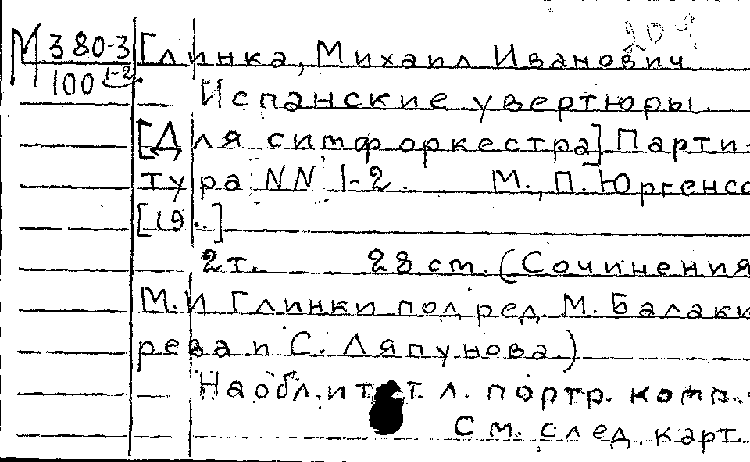 204
М 380-3 Глинка, Михаил Иванович
100 1-2.
Испанские увертюры
[Для симф оркестра] Парти-
тура NN 1-2. М., П. Юргенсо
[19..]
2т. 28 см. (Сочинения
М. И Глинки под ред М. Балаки
рева и С. Ляпунова)
На обл. и т. л. портр. комп.
См. след. карт.